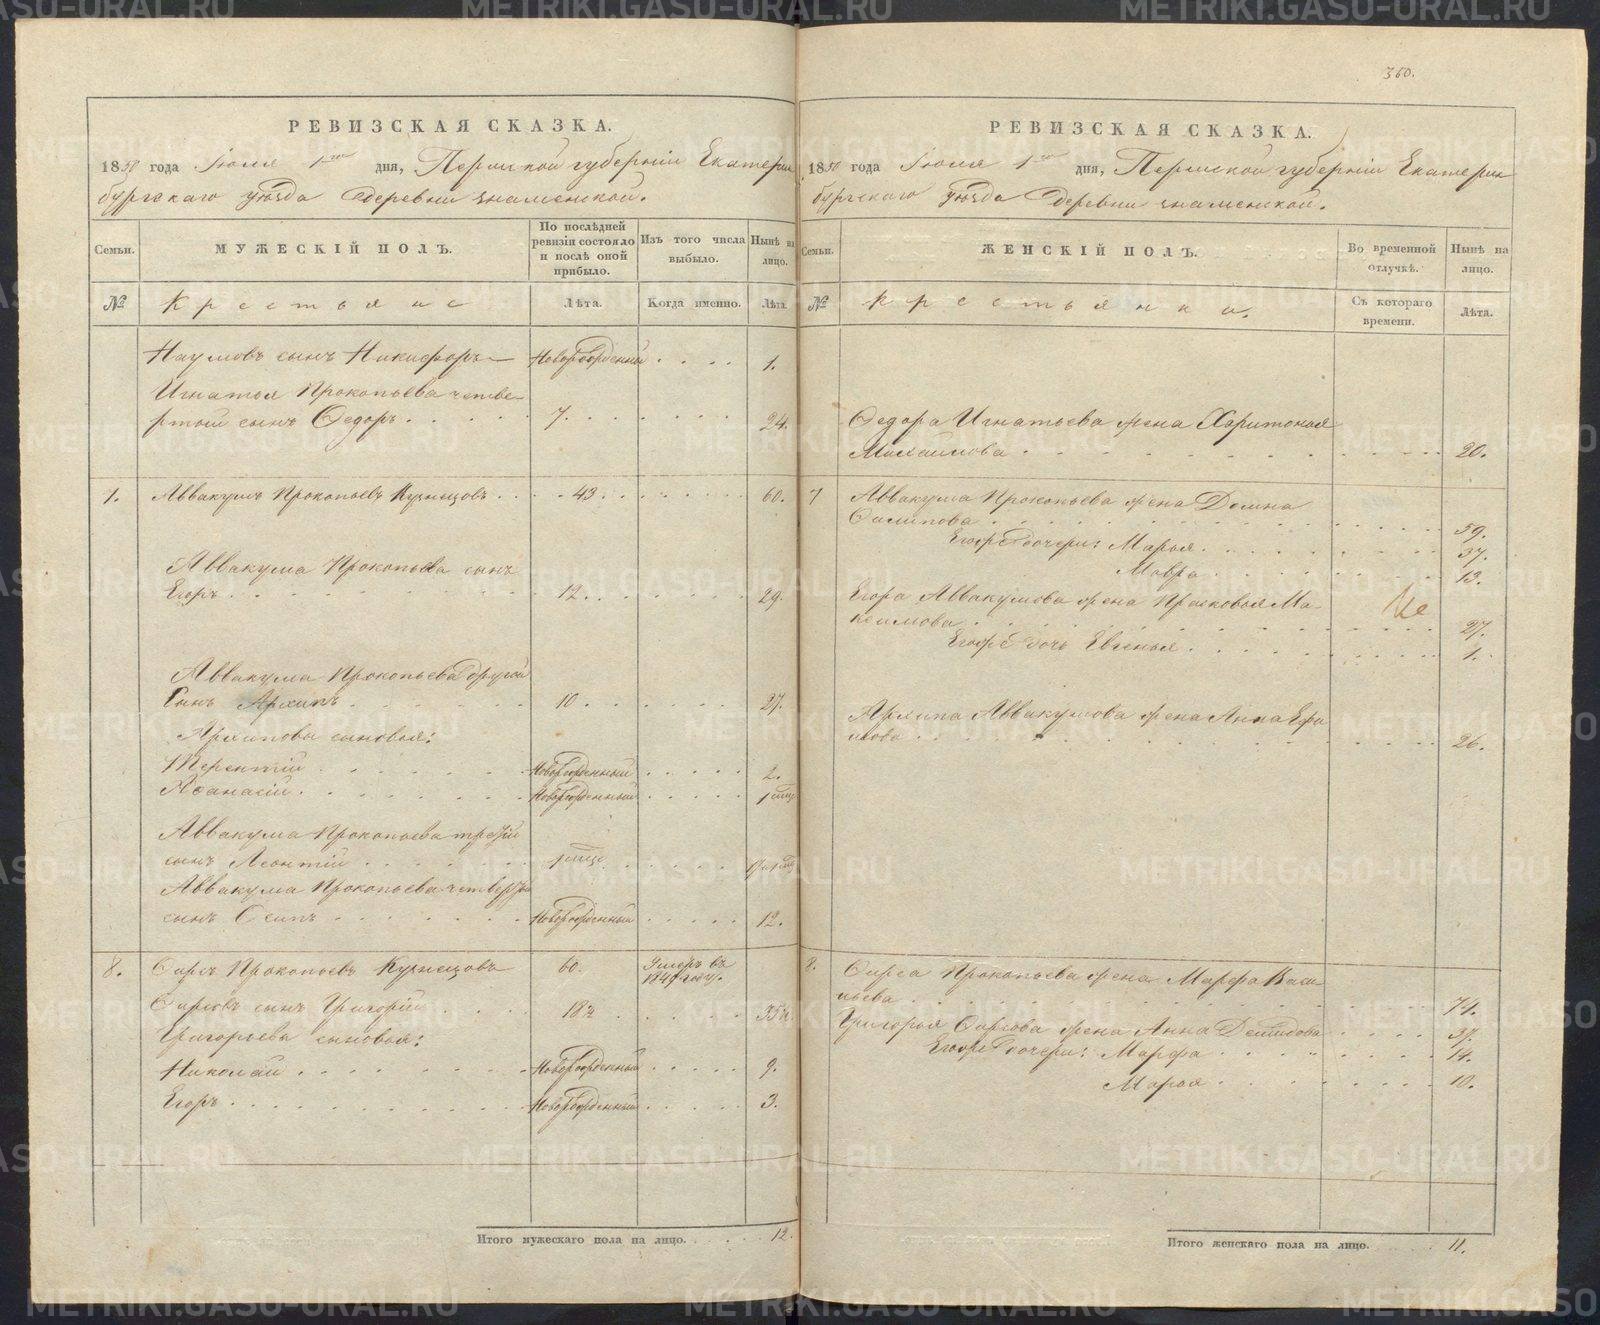 360.
РЕВИЗСКАЯ СКАЗКА.
1850 года Июля 1го дня, Пермской губерніи Екатерин
бургскаго уѣзда Деревни Знаменской.
Семьи.
МУЖЕСКІЙ ПОЛЪ.
По послѣдней ревизіи состояло и послѣ оной прибыло.
Изъ того числа выбыло.
Нынѣ на лицо.
№
Крестьяне
Лѣта.
Когда именно.
Лѣта.
Наумовъ сынъ Никифоръ Новорожденный . . . . 1.
Игнатья Прокопьева четве-
ртый сынъ Ѳедоръ . . . . 7. . . . . . 24.
Аввакумъ Прокопьевъ Кузнецовъ . . . . 43. . . . . . 60.
Аввакума Прокопьева сынъ
Егоръ . . . . 12. . . . . . 29.
Аввакума Прокопьева другой
сынъ Архипъ . . . . 10 . . . . . 27.
Архиповы сыновья:
Терентій . . . . Новорожденный . . . . 2.
Аѳанасій . . . . Новорожденный . . . . 1 мца
Аввакума Прокопьева третій
сынъ Леонтій . . . . 1 мца . . . .
Аввакума Прокопьева четвертый
сынъ Осипъ . . . . Новорожденный . . . . 12.
8. Сирсъ Прокопьевъ Кузнецовъ 60. Умеръ въ
1849 году.
Сирсовъ сынъ Григорій . . . . 18½ . . . . 35½
Григорьева сыновья:
Николай . . . . Новорожденный . . . . 9.
Егоръ . . . . Новорожденный . . . . 3.
Итого мужескаго пола на лицо. . . . . . 12.
РЕВИЗСКАЯ СКАЗКА.
1850 года Июля 1го дня, Пермской губерніи Екатерин
бургскаго уѣзда Деревни Знаменской.
Семьи.
ЖЕНСКІЙ ПОЛЪ.
Во временной отлучкѣ.
Нынѣ на лицо.
№
Крестьянки.
Съ котораго времени.
Лѣта.
Ѳедора Игнатьева жена Харитонья
Михайлова . . . . 20.
7 Аввакума Прокопьева жена Домна
Филипова . . . . 59.
Егоже дочери: Марья . . . . 37.
Мавра . . . . 13.
Егора Аввакумова жена Прасковья Ма-
ксимова . . . . 27.
Егоже дочь Евгенья . . . . 1.
Архипа Аввакумова жена Анна Ефи
мова . . . . 26.
8. Сирса Прокопьева жена Марфа Васи
льева . . . . 74.
Григорья Сирсова жена Анна Демидова . . . . 37.
Егоже дочери: Марфа . . . . 14.
Марья . . . . 10.
Итого женскаго пола на лицо. . . . . 11.
METRIKI.GASO-URAL.RU